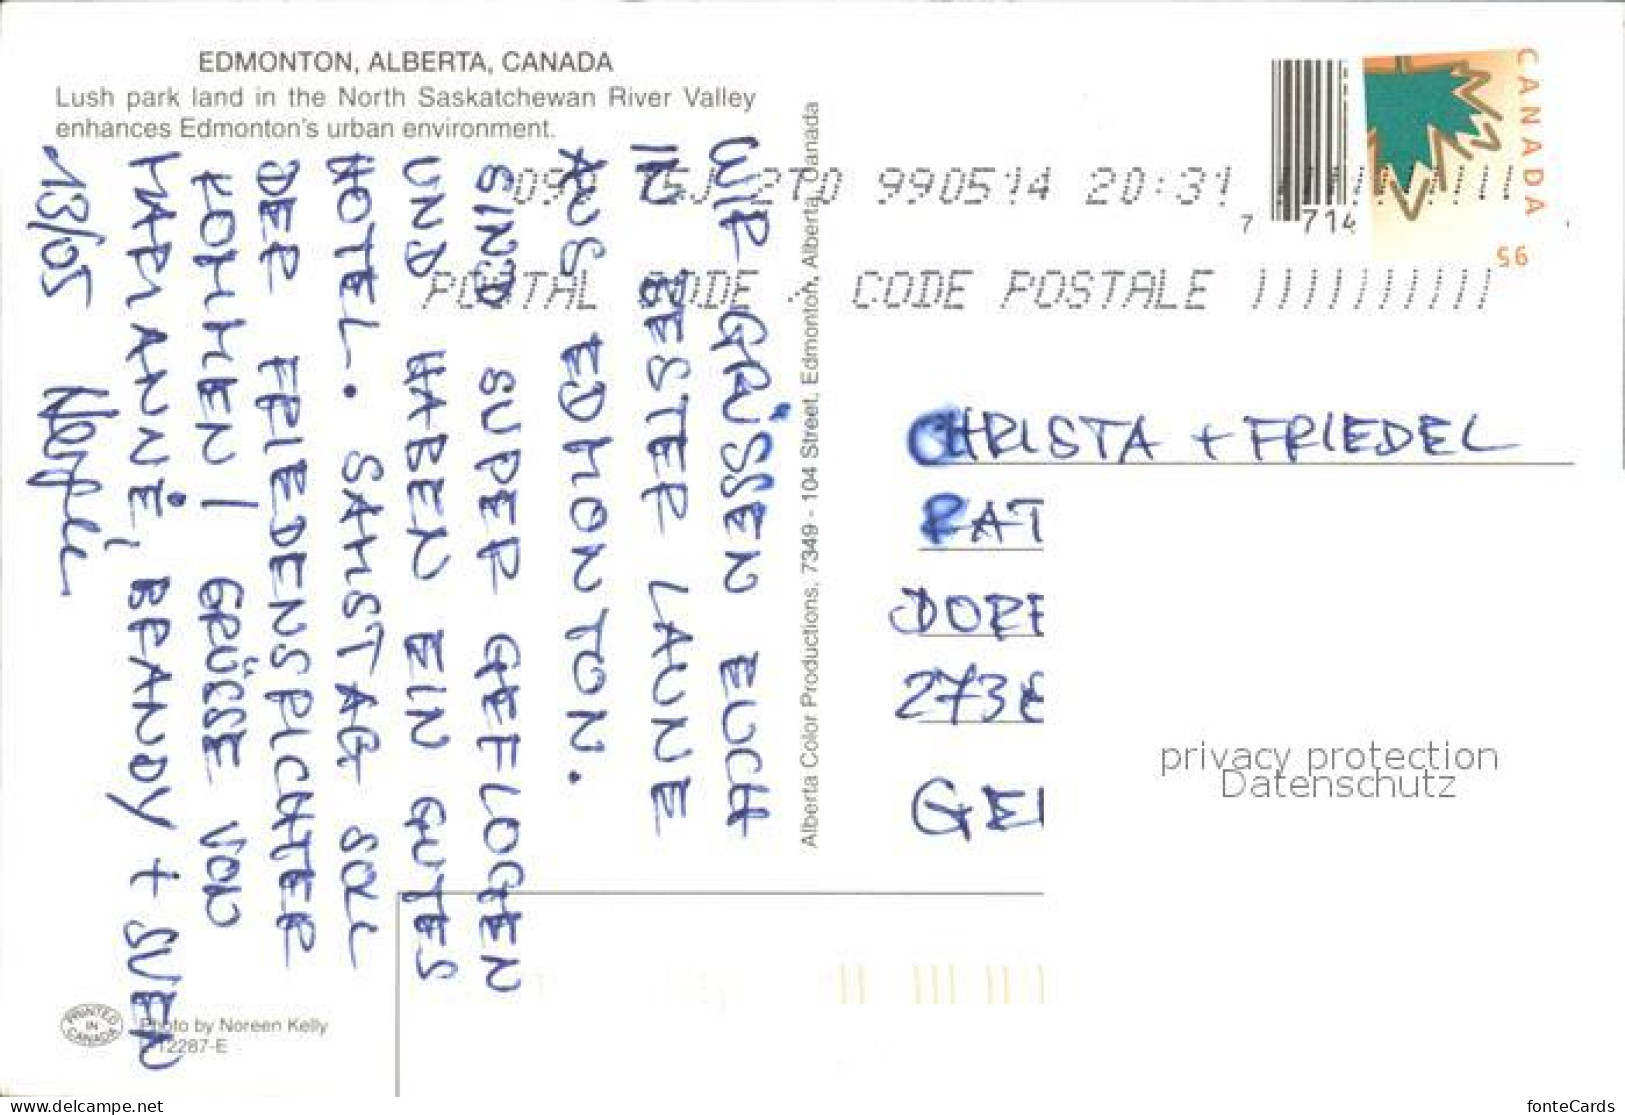 EDMONTON, ALBERTA, CANADA
Lush park land in the North Saskatchewan River Valley
enhances Edmonton's urban environment.
WIR GRÜSSEN EUCH
IN BESTER LAUNE
AUS EDMONTON.
SIND SUPER GEFLOGEN
UND HABEN EIN GUTES
HOTEL. SAMSTAG SOLL
DER FRIEDENSRICHTER
KOMMEN! GRÜSSE VON
MARIANNE, BRANDY + SVEN
13/05
Alberta Color Productions, 7349 - 104 Street, Edmonton, Alberta, Canada
990514 20:31
POSTAL CODE CODE POSTALE
7 714
CANADA
95
CHRISTA + FRIEDEL
RAT
DORF
273
GE
privacy protection
Datenschutz
PRINTED
IN
CANADA
Photo by Noreen Kelly
12287-E
www.delcampe.net
fonteCards